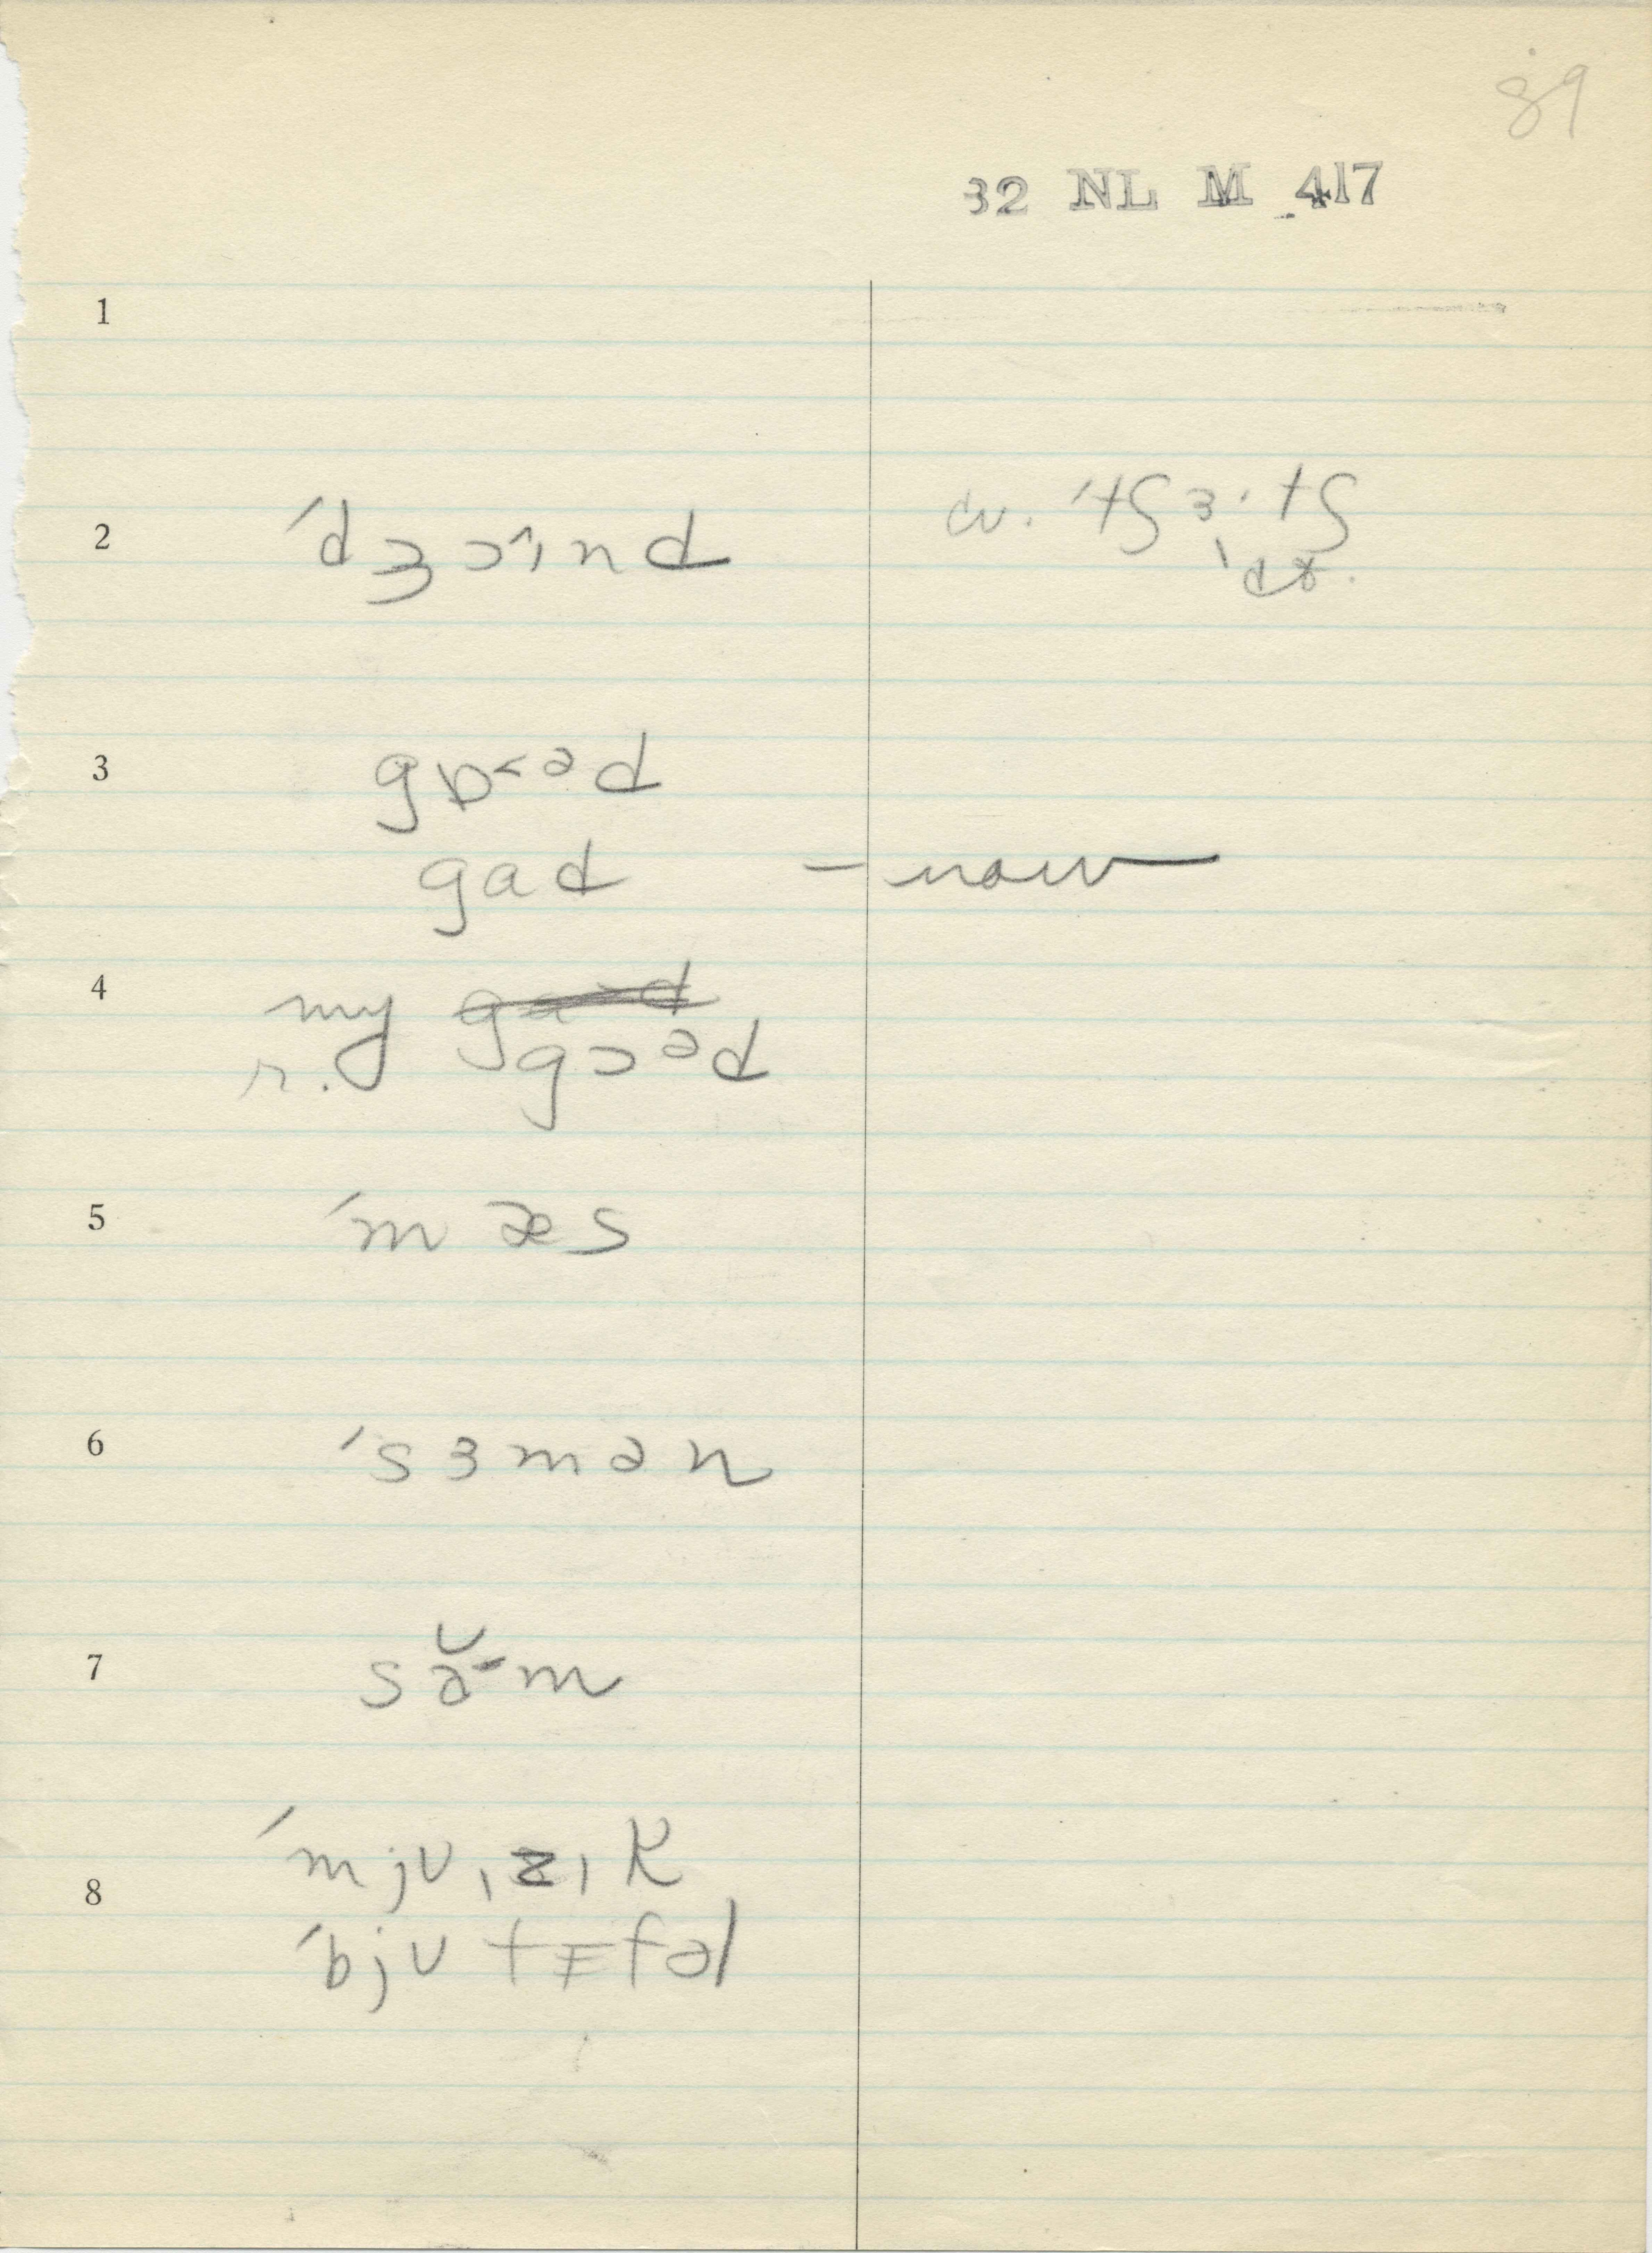 89
32 NL M 417
1
2 ˈdʒɔ˄ɪnd cv. ˈtʃɜ·tʃ
ˈdx.
3 gɒ˂ᵊd
gad — now
4 my gɔᵊd
r.
5 ˈmæs
6 ˈsɜmən
7 sɑ̆-m
ˈmjuˌzɪk
8
ˈbjutɪfəl